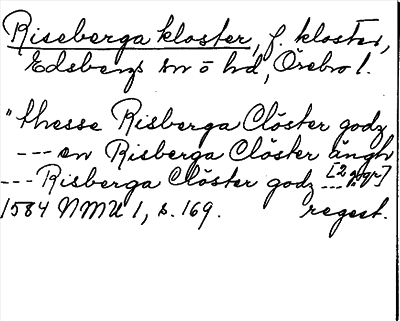 Riseberga kloster, f. kloster,
Edsbergs sn o hd, Örebro l.
"thesse Risberga Clöster godz
--- en Risberga Clöster ängh
--- Risberga Clöster godz ... " [2 ggr]
1584 NMU 1, s. 169. regest.